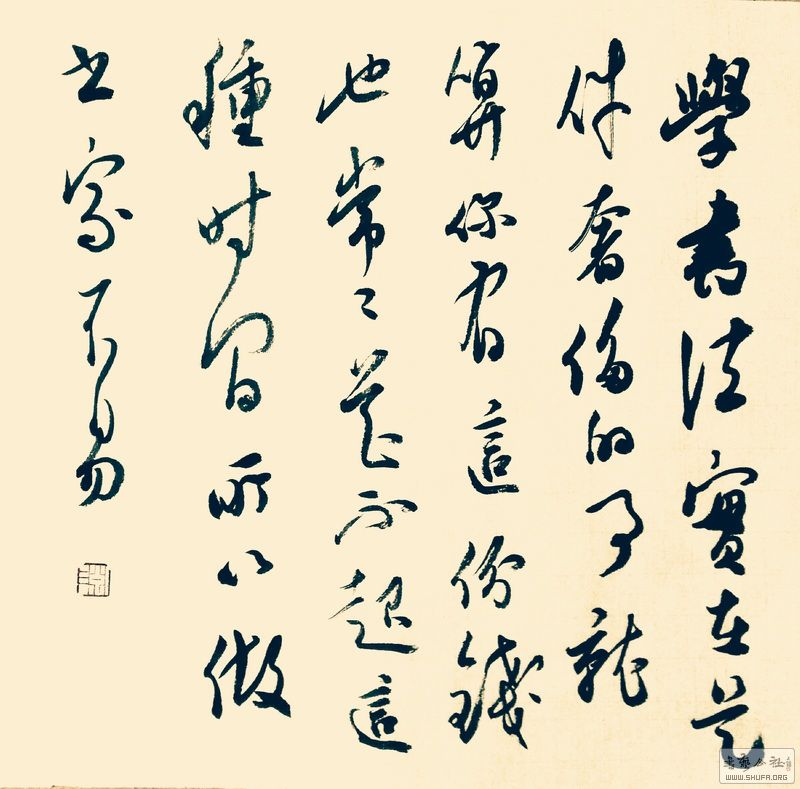 學書法實在是
件奢侈的事就
算你有這份錢
也常々花不起這
種時間所以做
书家不易
書藝公社
WWW.SHUFA.ORG